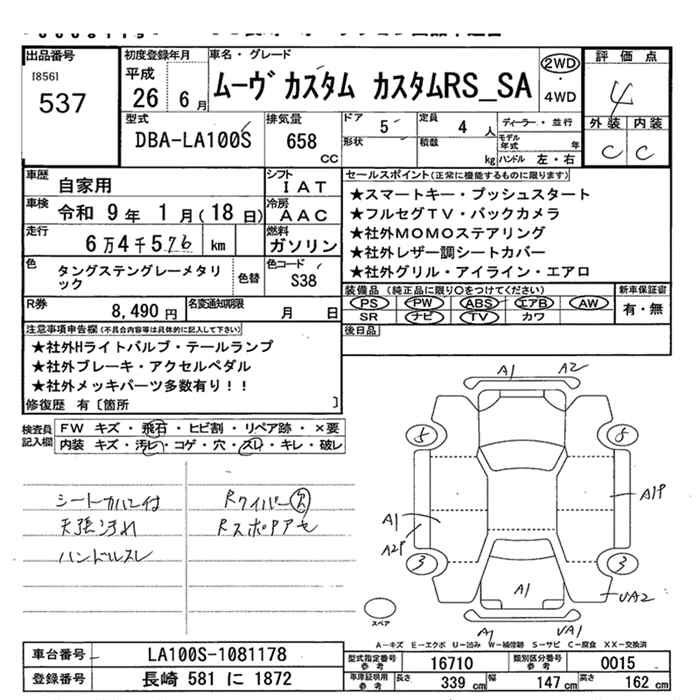 出品番号
18561
537
初度登録年月
平成
26 6月
車名・グレード
ムーヴ カスタム カスタムRS_SA
2WD
・
4WD
評価点
4
外装 内装
C C
型式
DBA-LA100S
排気量
658
CC
ドア
5
形状
定員
4 人
積載
kg
ディーラー・並行
モデル年式 年
ハンドル 左・右
車歴
自家用
シフト
IAT
車検
令和 9年 1月(18日)
冷房
AAC
走行
6万4千576 km
燃料
ガソリン
色
タングステングレーメタリック
色替
色コード
S38
R券
8,490円
名変通知期限
月 日
セールスポイント(正常に機能するものに限ります)
★スマートキー・プッシュスタート
★フルセグTV・バックカメラ
★社外MOMOステアリング
★社外レザー調シートカバー
★社外グリル・アイライン・エアロ
装備品(純正品に限り〇をつけてください)
PS PW ABS エアB AW
SR ナビ TV カワ
新車保証書
有・無
後日品
注意事項申告欄(不具合内容等は具体的に記入して下さい)
★社外Hライトバルブ・テールランプ
★社外ブレーキ・アクセルペダル
★社外メッキパーツ多数有り!!
修復歴 有〔箇所 〕
検査員記入欄
FW キズ・飛石・ヒビ割・リペア跡・×要
内装 キズ・汚レ・コゲ・穴・スレ・キレ・破レ
シートカバー付
天張汚れ
ハンドルスレ
Rワイパー欠
Rスポアセ
A1 A2
5 8
A1 A1P
A2P
3 3
A1
UA2
A1 UA1
スペア
A-キズ E-エクボ U-凹み W-補修跡 S-サビ C-腐食 XX-交換済
車台番号
LA100S-1081178
登録番号
長崎 581 に 1872
型式指定番号
参考
16710
類別区分番号
参考
0015
車庫証明用
参考
長さ
339 cm
幅
147 cm
高さ
162 cm